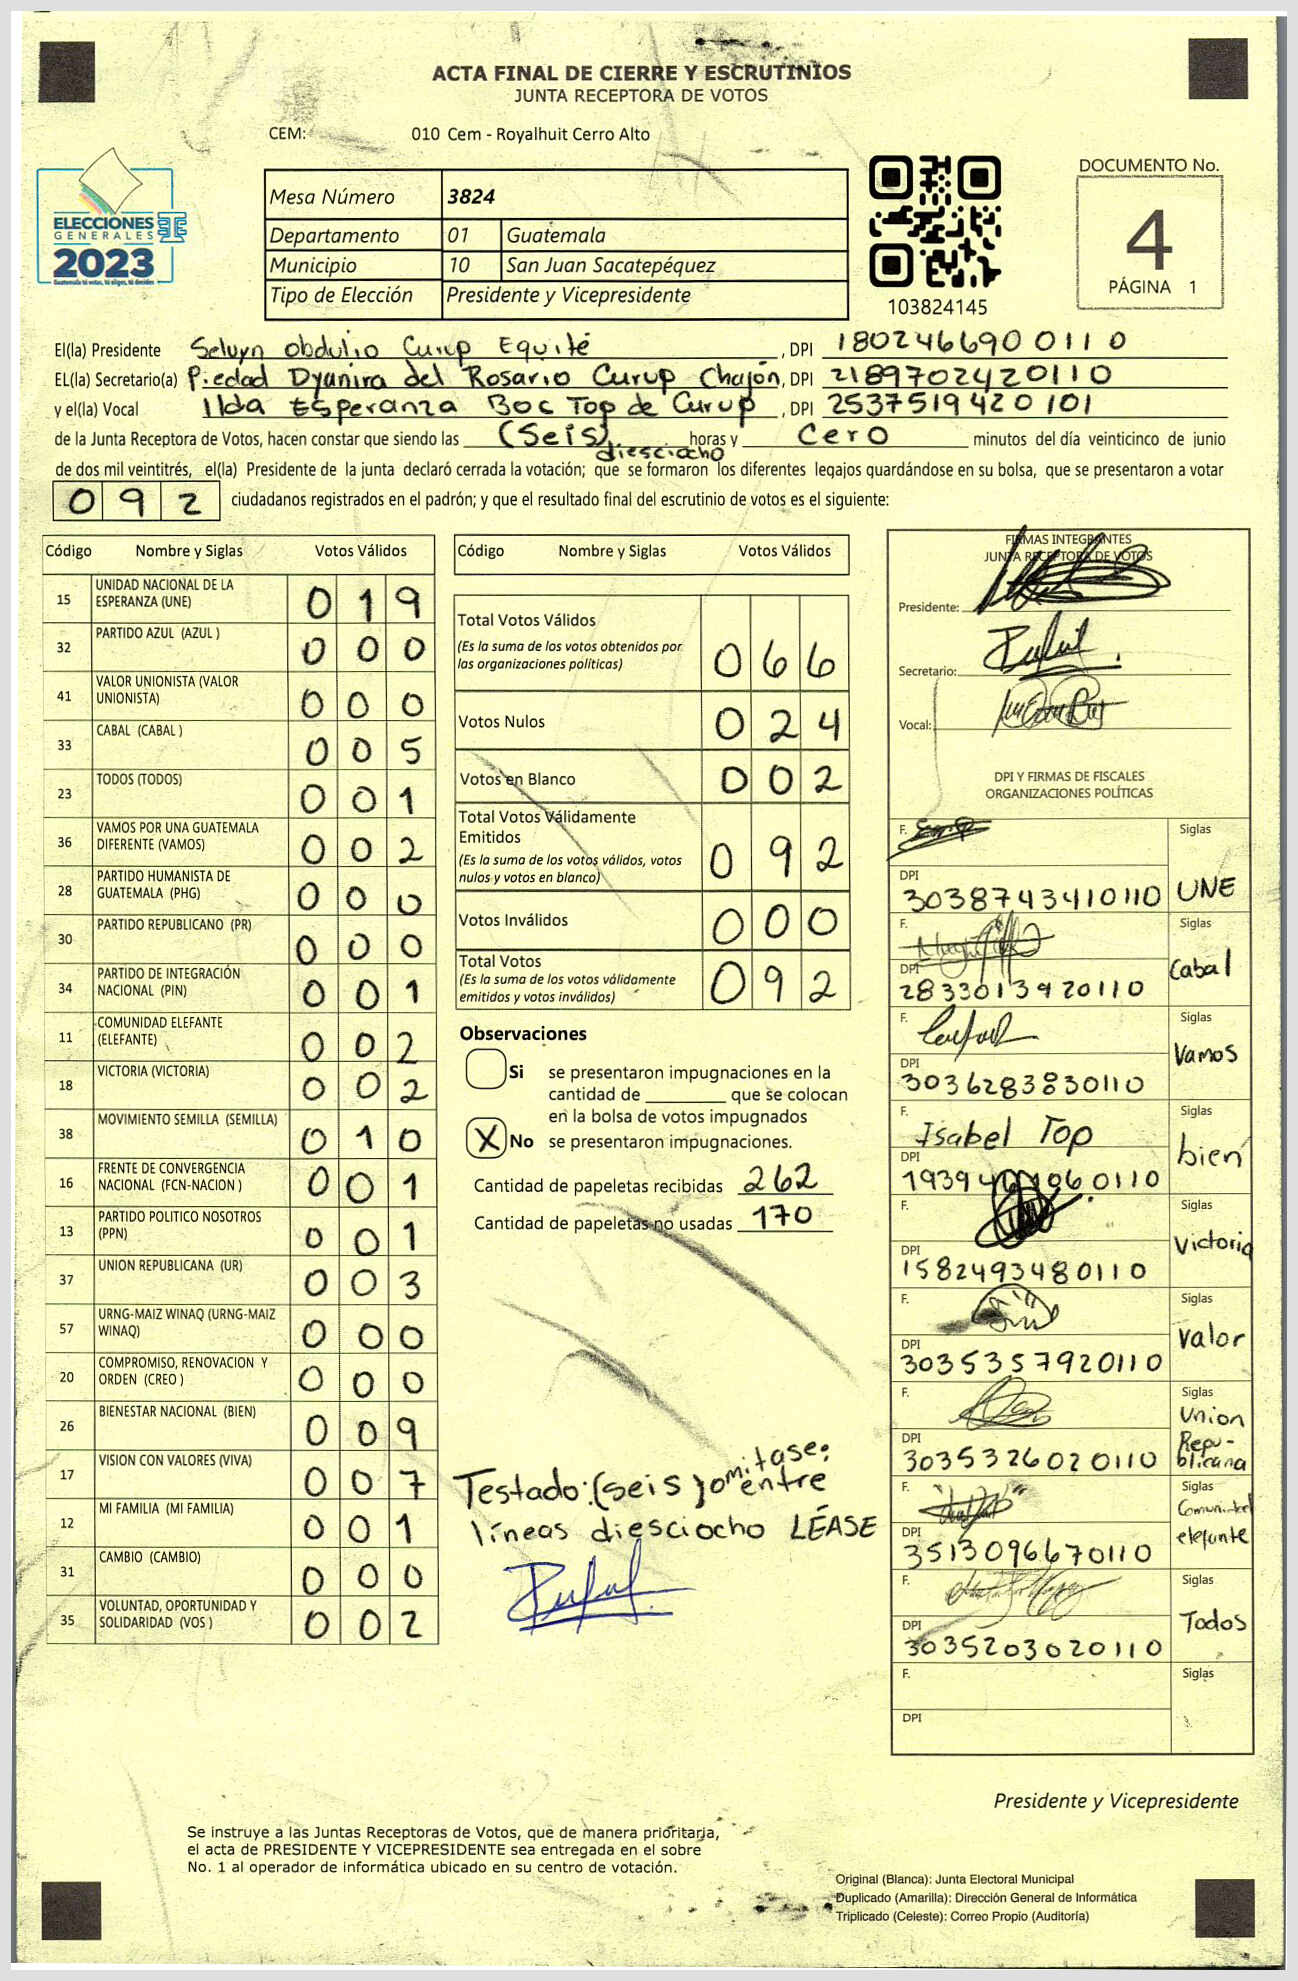 ACTA FINAL DE CIERRE Y ESCRUTINIOS
JUNTA RECEPTORA DE VOTOS
CEM: 010 Cem - Royalhuit Cerro Alto
ELECCIONES
GENERALES
2023
Guatemala tú votas, tú eliges, tú decides
Mesa Número 3824
Departamento 01 Guatemala
Municipio 10 San Juan Sacatepéquez
Tipo de Elección Presidente y Vicepresidente
103824145
DOCUMENTO No.
4
PÁGINA 1
El(la) Presidente Seluyn Obdulio Curup Equité, DPI 1802466900110
EL(la) Secretario(a) Piedad Dyanira del Rosario Curup Chajón, DPI 2189702420110
y el(la) Vocal Ilda Esperanza Boc Top de Curup, DPI 2537519420101
de la Junta Receptora de Votos, hacen constar que siendo las (Seis) horas y Cero minutos del día veinticinco de junio
diesciocho
de dos mil veintitrés, el(la) Presidente de la junta declaró cerrada la votación; que se formaron los diferentes legajos quardándose en su bolsa, que se presentaron a votar
092 ciudadanos registrados en el padrón; y que el resultado final del escrutinio de votos es el siguiente:
Código Nombre y Siglas Votos Válidos
15 UNIDAD NACIONAL DE LA ESPERANZA (UNE) 019
32 PARTIDO AZUL (AZUL ) 000
41 VALOR UNIONISTA (VALOR UNIONISTA) 000
33 CABAL (CABAL ) 005
23 TODOS (TODOS) 001
36 VAMOS POR UNA GUATEMALA DIFERENTE (VAMOS) 002
28 PARTIDO HUMANISTA DE GUATEMALA (PHG) 000
30 PARTIDO REPUBLICANO (PR) 000
34 PARTIDO DE INTEGRACIÓN NACIONAL (PIN) 001
11 COMUNIDAD ELEFANTE (ELEFANTE) 002
18 VICTORIA (VICTORIA) 002
38 MOVIMIENTO SEMILLA (SEMILLA) 010
16 FRENTE DE CONVERGENCIA NACIONAL (FCN-NACION ) 001
13 PARTIDO POLITICO NOSOTROS (PPN) 001
37 UNION REPUBLICANA (UR) 003
57 URNG-MAIZ WINAQ (URNG-MAIZ WINAQ) 000
20 COMPROMISO, RENOVACION Y ORDEN (CREO ) 000
26 BIENESTAR NACIONAL (BIEN) 009
17 VISION CON VALORES (VIVA) 007
12 MI FAMILIA (MI FAMILIA) 001
31 CAMBIO (CAMBIO) 000
35 VOLUNTAD, OPORTUNIDAD Y SOLIDARIDAD (VOS ) 002
Código Nombre y Siglas Votos Válidos
Total Votos Válidos
(Es la suma de los votos obtenidos por
las organizaciones políticas) 066
Votos Nulos 024
Votos en Blanco 002
Total Votos Válidamente
Emitidos
(Es la suma de los votos válidos, votos
nulos y votos en blanco) 092
Votos Inválidos 000
Total Votos
(Es la suma de los votos válidamente
emitidos y votos inválidos) 092
Observaciones
Si se presentaron impugnaciones en la
cantidad de ________ que se colocan
en la bolsa de votos impugnados
X No se presentaron impugnaciones.
Cantidad de papeletas recibidas 262
Cantidad de papeletas no usadas 170
Testado: (seis) omitase: entre
líneas diesciocho LÉASE
FIRMAS INTEGRANTES
JUNTA RECEPTORA DE VOTOS
Presidente:
Secretario:
Vocal:
DPI Y FIRMAS DE FISCALES
ORGANIZACIONES POLÍTICAS
F. Siglas
DPI
3038743410110 UNE
F. Siglas
DPI
2833013920110 Cabal
F. Siglas
DPI
3036283830110 Vamos
F. Isabel Top Siglas
DPI bien
F. Siglas
DPI Victoria
1582493480110
F. Siglas
DPI Valor
3035357920110
F. Siglas
DPI Union Repu-
3035326020110 blicana
F. Siglas
Comunidad
DPI elefante
3513096670110
F. Siglas
DPI Todos
3035203020110
F. Siglas
DPI
Presidente y Vicepresidente
Se instruye a las Juntas Receptoras de Votos, que de manera prioritaria,
el acta de PRESIDENTE Y VICEPRESIDENTE sea entregada en el sobre
No. 1 al operador de informática ubicado en su centro de votación.
Original (Blanca): Junta Electoral Municipal
Duplicado (Amarilla): Dirección General de Informática
Triplicado (Celeste): Correo Propio (Auditoría)